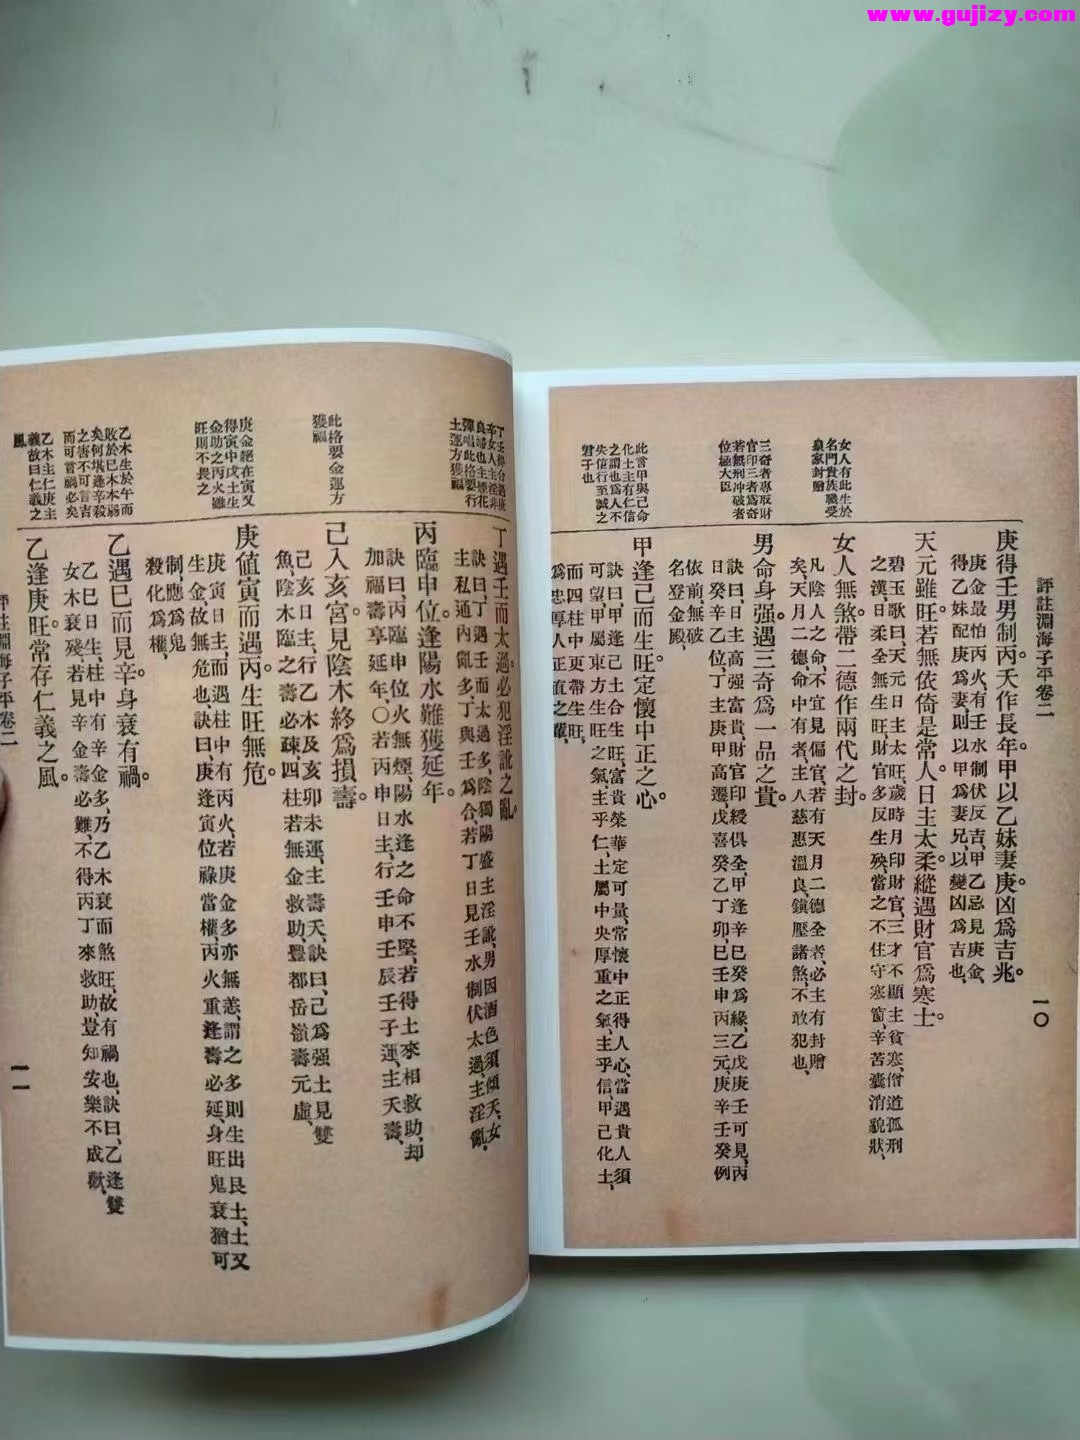 www.gujizy.com
評註淵海子平卷二
一〇
女人有此生於
名門貴族職受
皇家封贈
三奇者專取財
官印三者爲奇
若無刑冲破者
位極大臣
此言甲與己命
化土主有仁信
之謂也爲人不
失信行至誠之
君子也
庚得壬男制丙天作長年甲以乙妹妻庚凶爲吉兆
庚金最怕丙火有壬水制伏反吉甲乙忌見庚金
得乙妹配庚爲妻則以甲爲妻兄以變凶爲吉也
天元雖旺若無依倚是常人日主太柔縱遇財官爲寒士
碧玉歌曰天元日主太旺歲時月印財官三才不顯主貧寒僧道孤刑
之漢日柔全無生旺財官多反生殃當之不住守寒窗辛苦囊消貌狀
女人無煞帶二德作兩代之封
凡陰人之命不宜見偏官若有天月二德全者必主有封贈
矣天月二德命中有者主人慈惠溫良鎮壓諸煞不敢犯也
男命身强遇三奇爲一品之貴
訣曰日主高强富貴財官印綬俱全甲逢辛巳癸爲緣乙戊庚壬可見丙
日癸辛乙位丁主庚甲高遷戊喜癸乙丁卯己壬申丙三元庚辛壬癸例
依前無破
名登金殿
甲逢己而生旺定懷中正之心
訣曰甲逢己土合生旺富貴榮華定可量常懷中正得人心當遇貴人須
可望甲屬東方生旺之氣主乎仁土屬中央厚重之氣主乎信甲己化土
而四柱中更帶生旺
爲忠厚人正直之輩
丁壬得合遇庚
辛女人主淫非
良婦也主煙花
彈唱此格要行
土運方獲福
此格要金運方
獲福
庚金絕在寅又
得寅中戊土生
金助之丙火雖
旺則不畏之
乙木生於午而
敗於巳木本弱
矣何堪逢辛殺
之害不可言吉
而可言禍必矣
乙木主仁庚主
義故曰仁義之
風
丁遇壬而太過必犯淫訛之亂
訣曰丁遇壬而太過多陰獨陽盛主淫說男因酒色須傾夭女
主私通內亂多丁與壬爲合若丁日見壬水制伏太過主淫亂
丙臨申位逢陽水難獲延年
訣曰丙臨申位火無煙陽水逢之命不堅若得土來相救助却
加福壽享延年〇若丙申日主行壬申壬辰壬子運主夭壽
己入亥宮見陰木終爲損壽
己亥日主行乙木及亥卯未運主壽夭訣曰己爲强土見雙
魚陰木臨之壽必疎四柱若無金救助豐都岳嶺壽元虛
庚値寅而遇丙生旺無危
庚寅日主而遇柱中有丙火若庚金多亦無恙謂之多則生出艮土土又
生金故無危也訣曰庚逢寅位祿當權丙火重逢壽必延身旺鬼衰猶可
制應爲鬼
殺化爲權
乙遇巳而見辛身衰有禍
乙巳日生柱中有辛金多乃乙木衰而煞旺故有禍也訣曰乙逢雙
女木衰殘若見辛金壽必難不得丙丁來救助豈知安樂不成歡
乙逢庚旺常存仁義之風
評註淵海子平卷二
一一